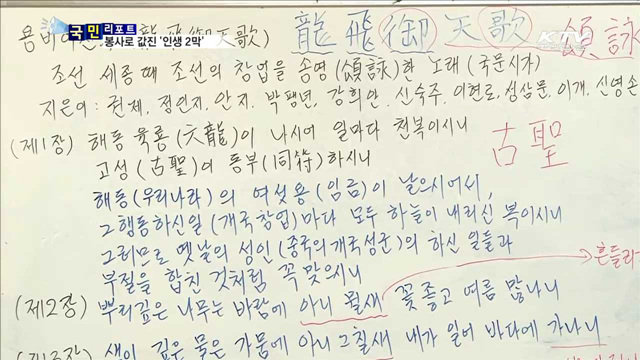 국민 리포트
봉사로 값진 '인생 2막'
KTV
龍飛御天歌) 龍飛御天歌 頌詠
조선 세종때 조선의 창업을 송영(頌詠)한 노래(국문시가)
지은이: 권제, 정인지, 안지, 박팽년, 강희안, 신숙주, 이현로, 성삼문, 이개, 신영손
(제1장) 해동 육룡(六龍)이 나시어 일마다 천복이시니
고성(古聖)이 동부(同符)하시니 古聖
해동(우리나라)의 여섯용(임금)이 날으시어서,
그행동하신일(개국창업)마다 모두 하늘이 내리신 복이시니
그러므로 옛날의 성인(중국의개국성군)의 하신 일들과
부절을 합친 것처럼 꼭맞으시니 흔들리
(제2장) 뿌리깊은 나무는 바람에 아니 뮐새 꽃좋고 여름 많나니
샘이 깊은 물은 가뭄에 아니 그칠새 내가 일어 바다에 가나니